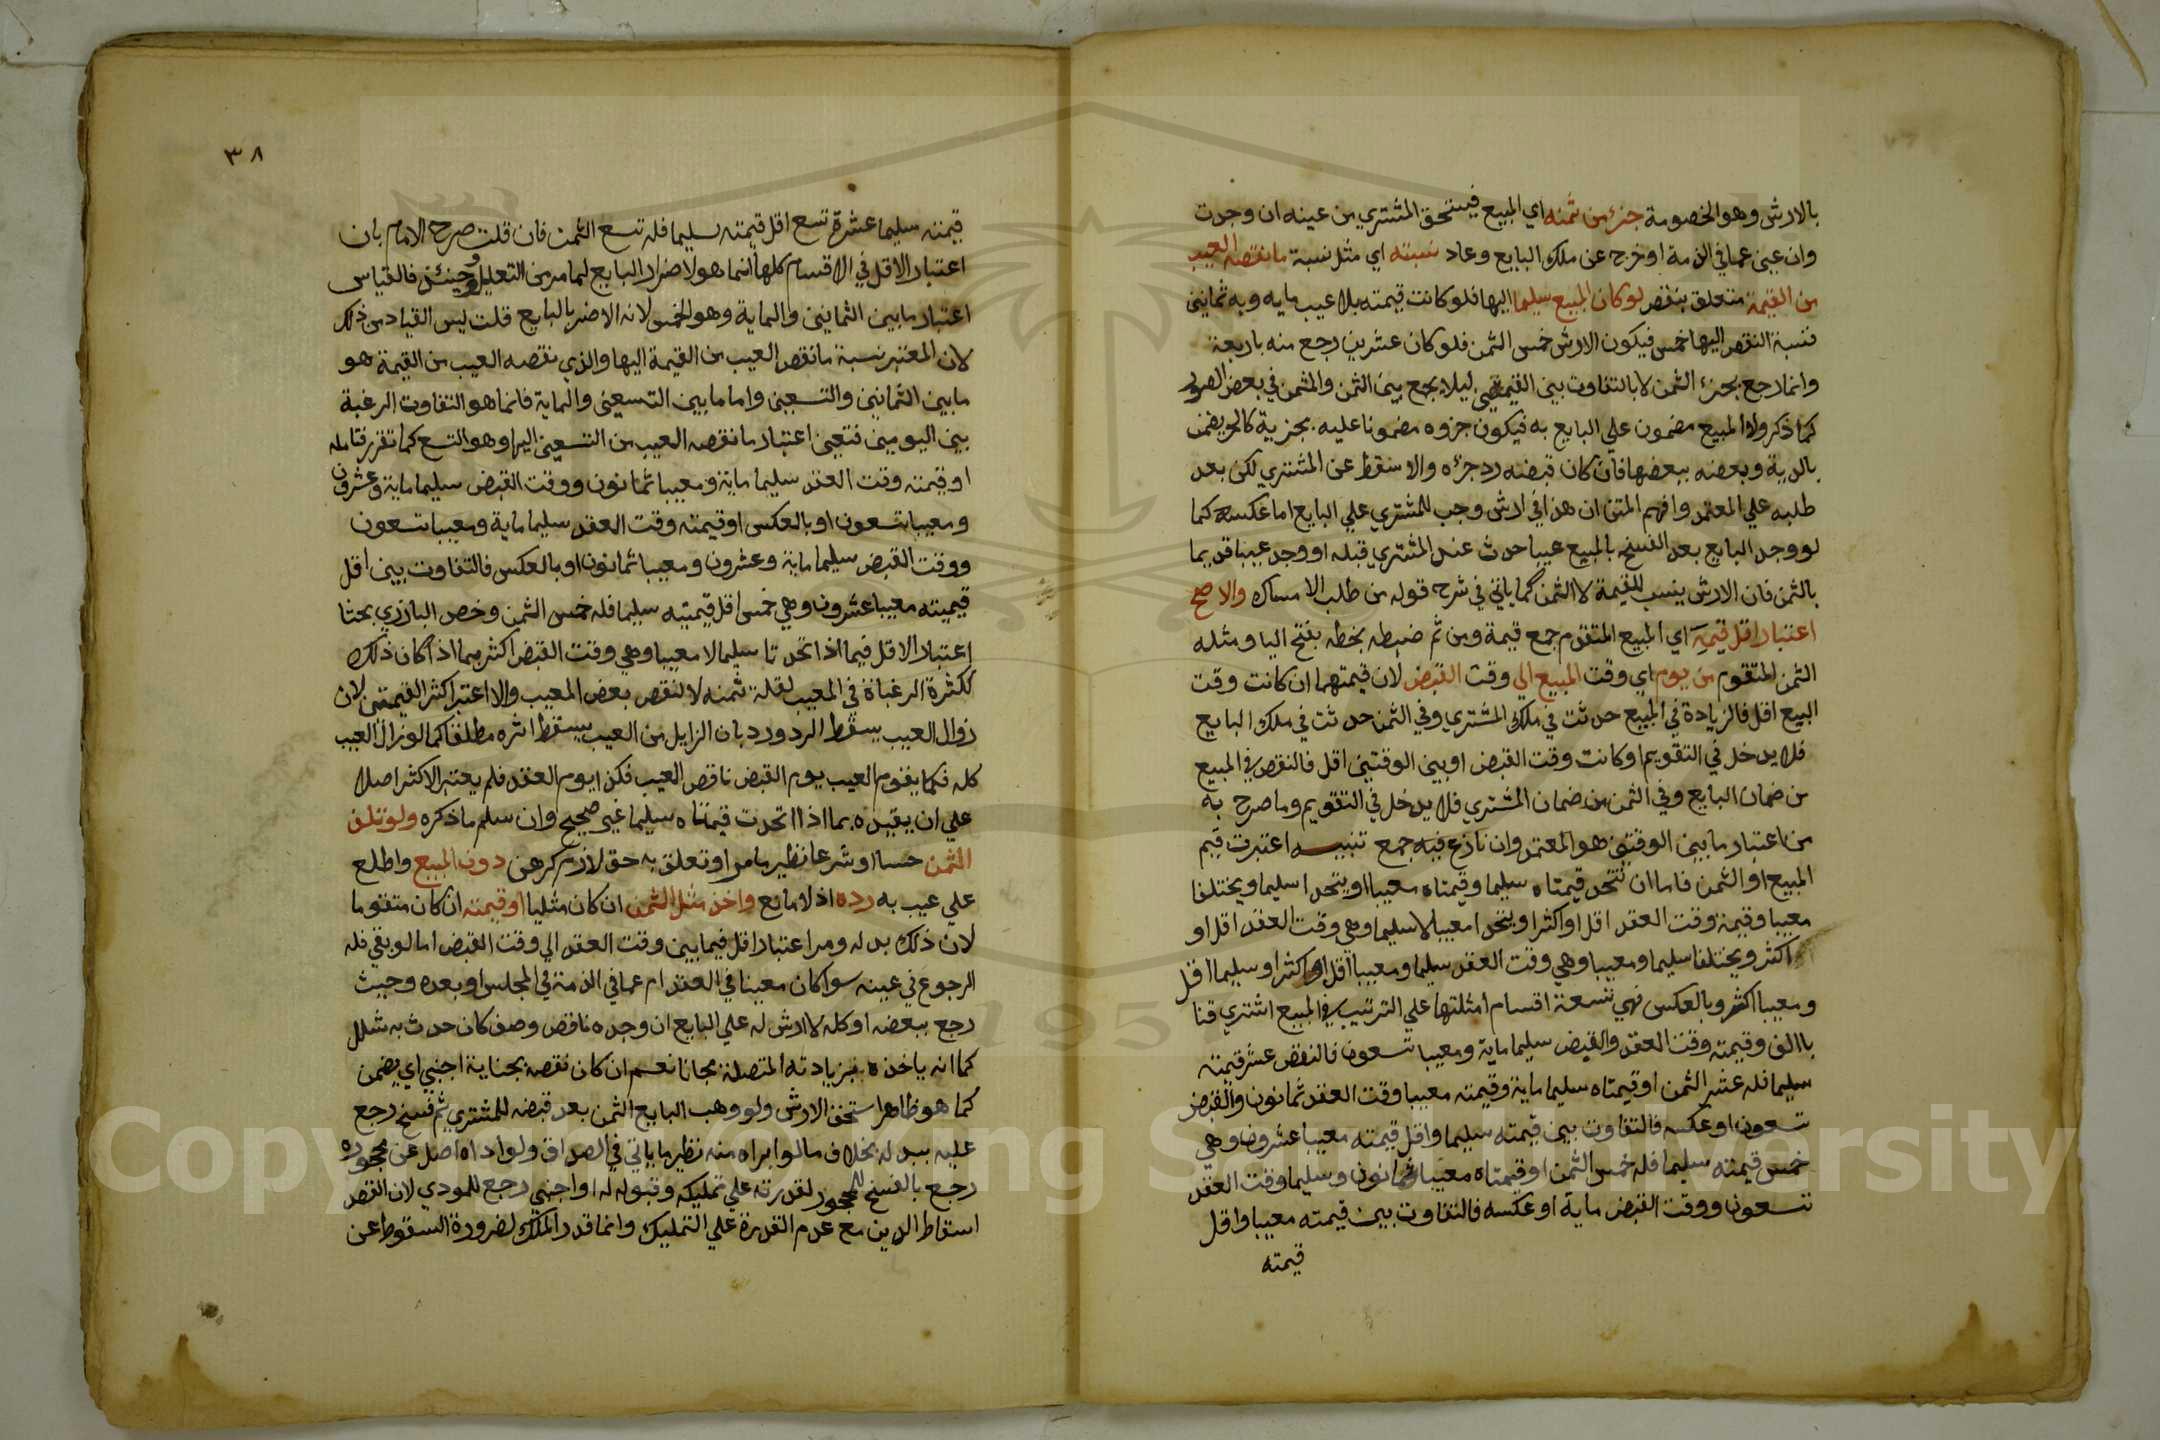 بالارش وهو الخصومة جزء من ثمنه اي المبيع فيستحق المشتري من عينه ان وجدت
وان عين عما في الذمة او خرج عن ملك البايع وعاد نسبته اي مثل نسبة ما نقصه العيب
من القيمة متعلق بنقص لو كان المبيع سليما اليها فلو كانت قيمته بلا عيب مايه وبه ثمانين
فنسبة النقص اليها خمس فيكون الارش خمس الثمن فلو كان عشرين رجع منه باربعة
وانما رجع بجزء الثمن لا بالتفاوت بين القيمتين ليلا يجمع بين الثمن والمثمن في بعض الصور
كما ذكر ولان المبيع مضمون علي البايع به فيكون جزوه مضمونا عليه بجزية كالحر يضمن
بالدية وبعضه ببعضها فان كان قبضه رد جزءه والا سقط عن المشتري لكن بعد
طلبه علي المعتمد وافهم المتن ان هذا في ارش وجب للمشتري علي البايع اما عكسه كما
لو وجد البايع بعد الفسخ بالمبيع عيبا حدث عند المشتري قبله او وجد عيبا قديما
بالثمن فان الارش ينسب للقيمة لا الثمن كما ياتي في شرح قوله من طلب الامساك والاصح
اعتبار اقل قيمه اي المبيع المتقوم جمع قيمة ومن ثم ضبطه بخطه بفتح اليا ومثله
الثمن المتقوم من يوم اي وقت المبيع الي وقت القبض لان قيمتهما ان كانت وقت
البيع اقل فالزيادة في المبيع حدثت في ملك المشتري وفي الثمن حدثت في ملك البايع
فلا يدخل في التقويم او كانت وقت القبض او بين الوقتين اقل فالنقص في المبيع
من ضمان البايع وفي الثمن من ضمان المشتري فلا يدخل في التقويم وما صرح به
من اعتبار ما بين الوقتين هو المعتمد وان نازع فيه جمع تنبيه اعتبرت قيم
المبيع او الثمن فاما ان تتحد قيمتاه سليما وقيمتاه معيبا او يتحدا سليما ويختلفا
معيبا وقيمته وقت العقد اقل او اكثر او يتحدا معيبا لا سليما وهي وقت العقد اقل او
اكثر ويختلفا سليما ومعيبا وهي وقت العقد سليما ومعيبا اقل او اكثر او سليما اقل
ومعيبا اكثر وبالعكس فهي تسعة اقسام امثلتها علي الترتيب في المبيع اشتري قنا
باالف وقيمته وقت العقد والقبض سليما ماية ومعيبا تسعون فالنقص عشر قيمته
سليما فله عشر الثمن او قيمتاه سليما ماية وقيمته معيبا وقت العقد ثمانون والقبض
تسعون او عكسه فالتفاوت بين قيمته سليما واقل قيمته معيبا عشرون وهي
خمس قيمته سليما فله خمس الثمن او قيمتاه معيبا ثمانون وسليما وقت العقد
تسعون ووقت القبض ماية او عكسه فالتفاوت بين قيمته معيبا واقل
قيمته
٣٨
قيمته سليما عشرة تسع اقل قيمته سليما فله تسع الثمن فان قلت صرح الامام بان
اعتبار الاقل في الاقسام كلها انما هو لاضرار البايع لما مر من التعليل وحينئذ فالقياس
اعتبار ما بين الثمانين والماية وهو الخمس لانه الاضر بالبايع قلت ليس القياد من ذلك
لان المعتبر نسبة ما نقص العيب من القيمة اليها والذي نقصه العيب من القيمة هو
ما بين الثمانين والتسعين واما ما بين التسعين والماية فانما هو التفاوت الرغبة
بين اليومين فتعين اعتبار ما نقصه العيب من التسعين اليها وهو التسع كما تقرر فتامله
او قيمته وقت العقد سليما ماية ومعيبا ثمانون ووقت القبض سليما ماية وعشرون
ومعيبا تسعون او بالعكس او قيمته وقت العقد سليما ماية ومعيبا تسعون
ووقت القبض سليما ماية وعشرون ومعيبا ثمانون او بالعكس فالتفاوت بين اقل
قيميته معيبا عشرون وهي خمس اقل قيمتيه سليما فله خمس الثمن وخص البارزي بحثا
اعتبار الاقل فيما اذا اتحدتا سليما لا معيبا وهي وقت القبض اكثر بما اذا كان ذلك
لكثرة الرغبات في المعيب لقلة ثمنه لا لنقص بعض المعيب والا اعتبر اكثر القيمتين لان
زوال العيب يسقط الرد ورد بان الزايل من العيب يسقط اثره مطلقا كما لو زال العيب
كله فكما يقوم العيب يوم القبض ناقص العيب فكذا يوم العقد فلم يعتبر الاكثر اصلا
علي ان يقيده بما اذا اتحدت قيمتاه سليما غير صحيح وان سلم ما ذكره ولو تلف
الثمن حسا او شرعا نظير ما مر او تعلق به حق لازم كرهن دون المبيع واطلع
علي عيب به رده اذ لا مانع واخذ مثل الثمن ان كان مثليا او قيمته ان كان متقوما
لان ذلك بدله ومر اعتبار اقل فيما بين وقت العقد الي وقت القبض اما لو بقي فله
الرجوع في عينه سوا كان معينا في العقد ام عما في الذمة في المجلس او بعده وحيث
رجع ببعضه او كله لا ارش له علي البايع ان وجده ناقص وصف كان حدث به شلل
كما انه ياخذه بزيادته المتصلة مجانا نعم ان كان نقصه بجناية اجنبي اي يضمن
كما هو ظاهر استحق الارش ولو وهب البايع الثمن بعد قبضه للمشتري ثم فسخ رجع
عليه ببدله بخلاف ما لو ابراه منه نظير ما ياتي في الصداق ولو اداه اصل عن محجوره
رجع بالفسخ للمحجور لقدرته علي تمليكه وقبوله له او اجنبي رجع للمودي لان القصد
اسقاط الدين مع عدم القدرة علي التمليك وانما قدر الملك لضرورة السقوط عن
Copyright © King Saud University
1957